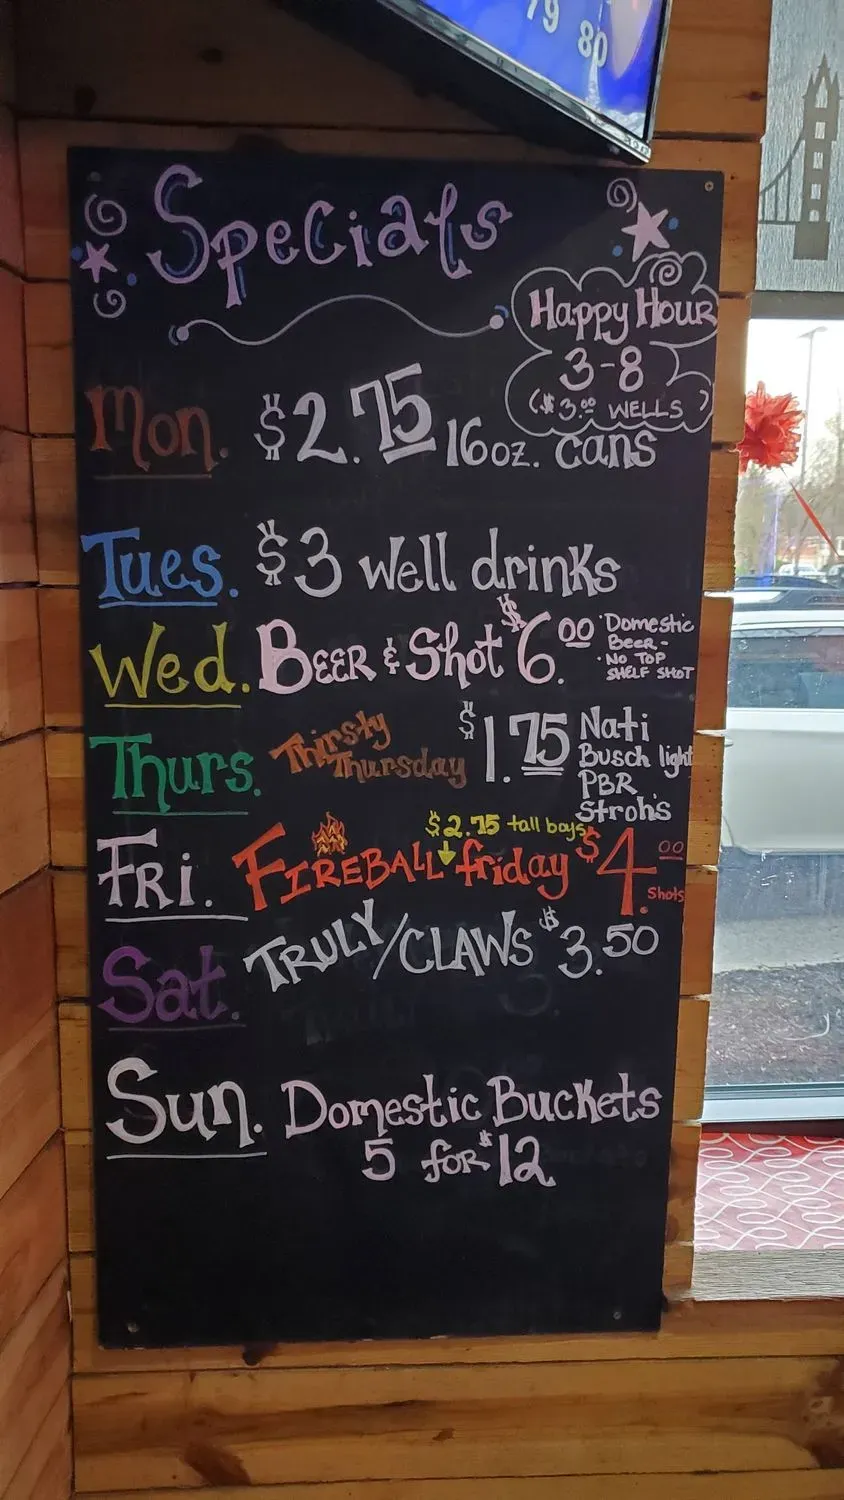 79 80
Specials
Happy Hour
3-8
($3.00 WELLS)
Mon. $2.75 16oz. cans
Tues. $3 well drinks
Wed. BEER & Shot $6.00
·Domestic
Beer-
·NO TOP
SHELF SHOT
Thurs. Thirsty
Thursday
$1.75
Nati
Busch light
PBR
Stroh's
$2.75 tall boys
FRi. FIREBALL friday $4.00
Shots
Sat. TRULY/CLAWS $3.50
Sun. Domestic Buckets
5 for $12